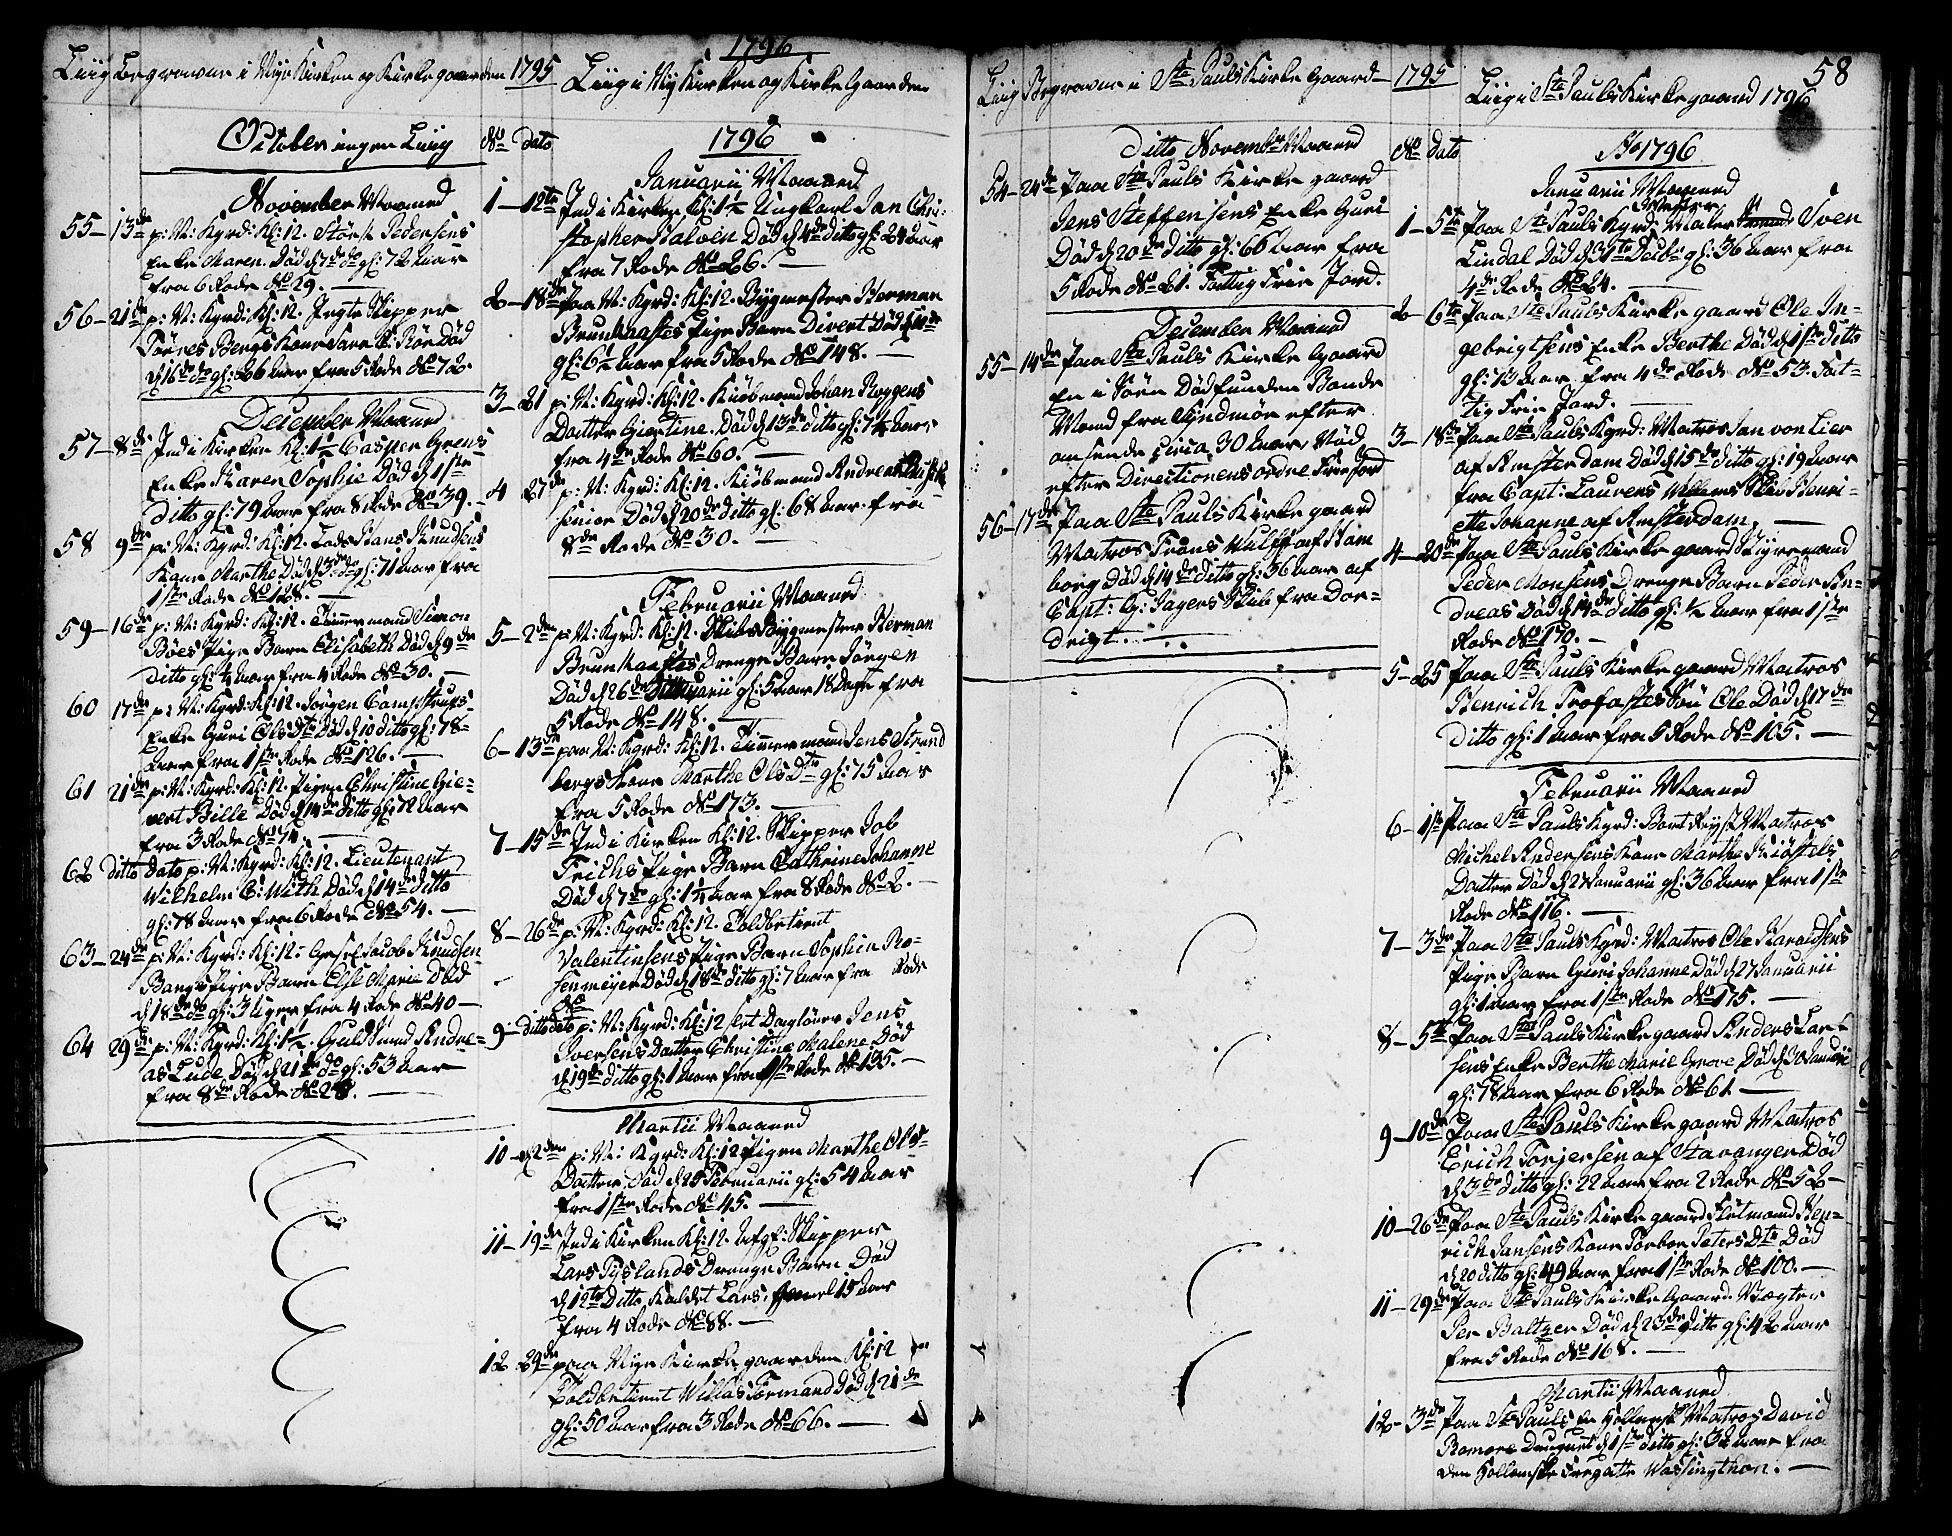 1796
Liig Begravne i Nye Kirken og Kirkegaarden 1795
October ingen Liig
November Maaned
55 – 13de p: N: Kgrd: Kl: 12. Størk Pedersens
Enke Maren. Død d 7de do gl: 72 Aar
fra 6 Rode No 29. —
56 – 21de p: N: Kgrd: Kl: 12. Jegte Skipper
Tørres Bergs Kone Død
d 16de do gl: 26 Aar fra 5 Rode No 72.
December Maaned
57 – 8de Ind i Kirken Kl: 1½ Casper Greens
Enke Karen Sophie Død d 1ste
Ditto gl: 79 Aar fra 8 Rode No 39. —
58 9de p: N: Kgrd: Kl: 12. Lods Hans Knudsens
Kone Marthe Død d 3de do gl: 71 Aar fra
1ste Rode No 128. —
59 – 16de p: N: Kgrd: Kl: 12. Timmermand Simon
Böes Pige Barn Elisabeth Død d 9de
Ditto gl: ¼ Aar fra 4 Rode No 30. —
60 17de p: N: Kgrd: Kl: 12. Jørgen Campstrups
Enke Guri Ols Dtr Død d 10 ditto gl: 78
Aar fra 1ste Rode No 126. —
61 21de p: N: Kgrd: Kl: 12. Pigen Christine Gie-
vert Bille Død d 14de ditto gl: 72 Aar
fra 3 Rode No 74. —
62 Ditto Dato p: N: Kgrd: Kl: 12. Lieutenant
Wilhelm C: With Død d 14de ditto
gl: 78 Aar fra 6 Rode No 54. —
63 – 24de p: N: Kgrd: Kl: 12. Jacob Knudsen
Bangs Pige Barn Else Marie Død
d 18de do gl: 3 Uger fra 4 Rode No 40 —
64 29de p: N: Kgrd: Kl: 1½. Guldsmed Andre-
as Lude Død d 21de do gl: 53 Aar
fra 8de Rode No 28. —
Liig i Ny Kirken og Kirke Gaarden
No Dato 1796
Januarii Maaned
1 – 12te Ind i Kirken Kl: 1½ Ungkarl Jan Chri-
stopher Død d 4de Dito gl: 24 Aar
fra 7 Rode No 26. —
2 – 18de Paa N: Kgrd: Kl: 12. Bygmester Herman
Brunkaastes Pige Barn Divert Død d 10de
gl: 6½ Aar fra 5 Rode No 148. —
3 – 21 p: N: Kgrd: Kl: 12. Kiøbmand Johan Roggens
Datter Giertine. Død d 13de ditto gl: 7¼ Aar
fra 4de Rode No 60. —
4 27de p: N: Kgrd: Kl: 12. Kiøbmand Andreas
senior Død d 20de ditto gl: 68 Aar. fra
8de Rode No 30. —
Februarii Maaned
5 – 2den p: N: Kgrd: Kl: 12. Skibs Bygmester Herman
Brunkaastes Drenge Barn Jørgen
Død d 26de Januarii gl: 5 Aar 18 Dage fra
5 Rode No 148. —
6 – 13de paa N: Kgrd: Kl: 12. Timmermand Jens Strand
bergs Kone Marthe Ols Dtr gl: 75 Aar
fra 5 Rode No 173. —
7 – 15de Ind i Kirken Kl: 12. Skipper Job
Frichs Pige Barn Cathrine Johanne
Død d 7de gl: 1¼ Aar fra 8 Rode No 2. —
8 – 26de p: N: Kgrd: Kl: 12. Toldbetient
Valentinsens Pige Barn Sophia Ro-
senmeyer Død d 18de ditto gl: 7 Aar fra Rode
No
9 – ditto dato p: N: Kgrd: Kl: 12 Dagløner Jens
Iversens Datter Christine Malene Død
d 19de ditto gl: 1 Aar fra 1ste Rode No 135. —
Martii Maaned
10 – d 2den p: N: Kgrd: Kl: 12 Pigen Marthe Ols-
Datter. Død d 25 Februarii gl: 54 Aar
fra 1ste Rode No 45. —
11 – 19de Ind i Kirken Kl: 12. Afgl: Skipper
Lars Tyslands Drenge Barn Død
d 12te Ditto, Kaldet Lars, gammel 15 Aar
fra 4 Rode No 88. —
12 29de paa Nye Kirke gaarden Kl: 12
Toldbetient Willas Formand Død d 21de
gl: 50 Aar fra 3 Rode No 66. —
Liig Begravne i Ste Pauls Kirke Gaard 1795
Ditto November Maaned
54 – 24de Paa Ste Pauls Kirke gaard
Jens Steffensens Enke Guri
Død d 20de ditto gl: 66 Aar fra
5 Rode No 21. Fattig Frie Jord.
December Maaned
55 – 14de Paa Ste Pauls Kirke Gaard
En i Søen Død funden Bonde
Mand fra Sindmør efter
anseende circa 30 Aar. Nød
efter Directionens ordre Frie Jord
56 – 17de Paa Ste Pauls Kirke gaard
Matros Frans Wulff af Ham
borg Død d 14de ditto gl: 36 Aar af
Capt: G: Jagers Skib fra Dor-
drigt. —
58
Liig i Ste Pauls Kirke gaard 1796
No Dato Ao 1796
Januarii Maaned
1 – 5te Paa Ste Pauls Kgrd: Maler Svend Mester Sven
Lindal Død d 31te Decbr gl: 36 Aar fra
4de Rode No 24. —
2 – 6te Paa Ste Pauls Kirke gaard Ole In-
gebrigtsens Enke Berthe Død d 1ste ditto
gl: 73 Aar fra 4de Rode No 53. Fat-
tig Frie Jord. —
3 – 18de Paa Ste Pauls Kgrd: Matros Jan von Lier
af Amsterdam Død d 15de ditto gl: 19 Aar
fra Capt: Laurens Willems Skib Henri-
ette Johanne af Amsterdam. —
4 – 20de Paa Ste Pauls Kirke gaard Styremand
Peder Monsens Drenge Barn Peder An-
dreas Død d 14de ditto gl: ½ Aar fra 1ste
Rode No 170. —
5 – 25 Paa Ste Pauls Kirke gaard Matros
Henrich Trofastes Søn Ole Død d 17de
Ditto gl: 1 Aar fra 5 Rode No 105. —
Februarii Maaned
6 – 1ste Paa Ste Pauls Kgrd: Bort Reyst Matros
Michel Andersens Kone Marthe Kiøstels
Datter Død d 27 Januarii gl: 36 Aar fra 1ste
Rode No 116. —
7 – 3de Paa Ste Pauls Kgrd: Matros Ole Haraldsens
Pige Barn Guri Johanne Død d 27 Januarii
gl: 1 Aar fra 1ste Rode No 175. —
8 – 5te Paa Ste Pauls Kirke gaard Anders Lar-
sens Enke Berthe Marie Grove Død d 30 Januarii
gl: 78 Aar fra 6 Rode No 61 —
9 – 10de Paa Ste Pauls Kirke gaard Matros
Erich Torjersen af Stavanger Død
d 3de ditto gl: 22 Aar fra 2 Rode No 52 —
10 – 26de Paa Ste Pauls Kirke gaard Fløtmand Hen-
rich Jansens Kone Torbor Peters Dtr Død
d 20 ditto gl: 49 Aar fra 1ste Rode No 100. —
11 – 29de Paa Ste Pauls Kirke Gaard Vægter
Per Baltzer Død d 23de ditto gl: 42 Aar
fra 5 Rode No 168. —
Martii Maaned
12 – 3de Paa Ste Pauls En Hollensk Matros David
d 1ste ditto gl: 32 Aar fra
den Hollenske Fregatte Wassingthon. —